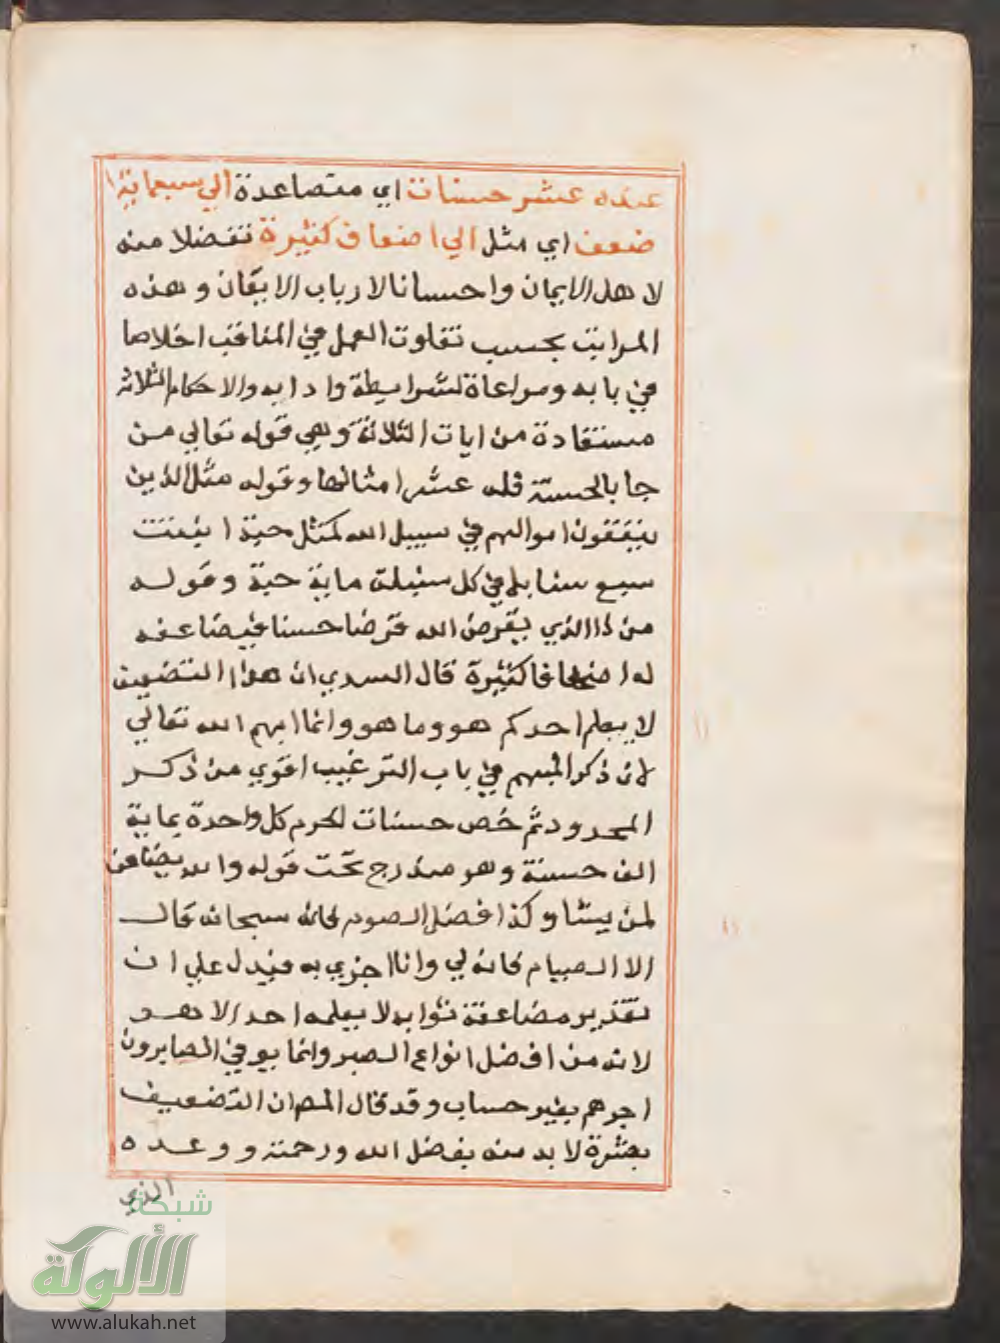 عنده عشر حسنات اي متصاعدة الي سبعماية
ضعف اي مثل الي اضعاف كثيرة تفضلا منه
لاهل الايمان واحسانا لارباب الايقان وهذه
المراتب بحسب تفاوت العمل في المناقب اخلاصا
في بابه ومراعاة لشرايطه وادابه والاحكام الثلاثة
مستفادة من ايات الثلاثة وهي قوله تعالي من
جا بالحسنة فله عشر امثالها وقوله مثل الذين
ينفقون اموالهم في سبيل الله كمثل حبة انبتت
سبع سنابل في كل سنبلة ماية حبة وقوله
من ذا الذي يقرض الله قرضا حسنا فيضاعفه
له اضعافا كثيرة قال السدي ان هذا التضعيف
لا يعلم احدكم هو وما هو وانما ابهم الله تعالي
لان ذكر المبهم في باب الترغيب اقوي من ذكر
المحدود ثم خص حسنات لحرم كل واحدة بماية
الف حسنة وهو مندرج تحت قوله والله يضاعف
لمن يشا وكذا فضل الصوم فانه سبحانه قال
الا الصيام فانه لي وانا اجزي به فيدل علي ان
تقدير مضاعفة ثوابه لا يعلمه احد الا هو
لانه من افضل انواع الصبر وانما يوفي الصابرون
اجرهم بغير حساب وقد قال المص ان التضعيف
بعشرة لا بد منه بفضل الله ورحمته ووعده
الذي
شبكة
الألوكة
www.alukah.net